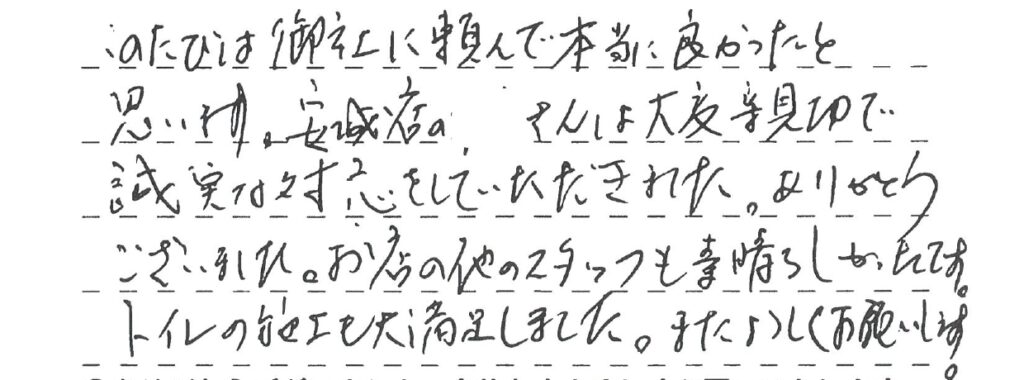 このたびは御社に頼んで本当に良かったと
思います。安城店の さんは大変親切で
誠実な対応をしていただきれた。ありがとう
ございました。お店の他のスタッフも素晴らしかったです。
トイレの施工も大満足しました。またよろしくお願いします。